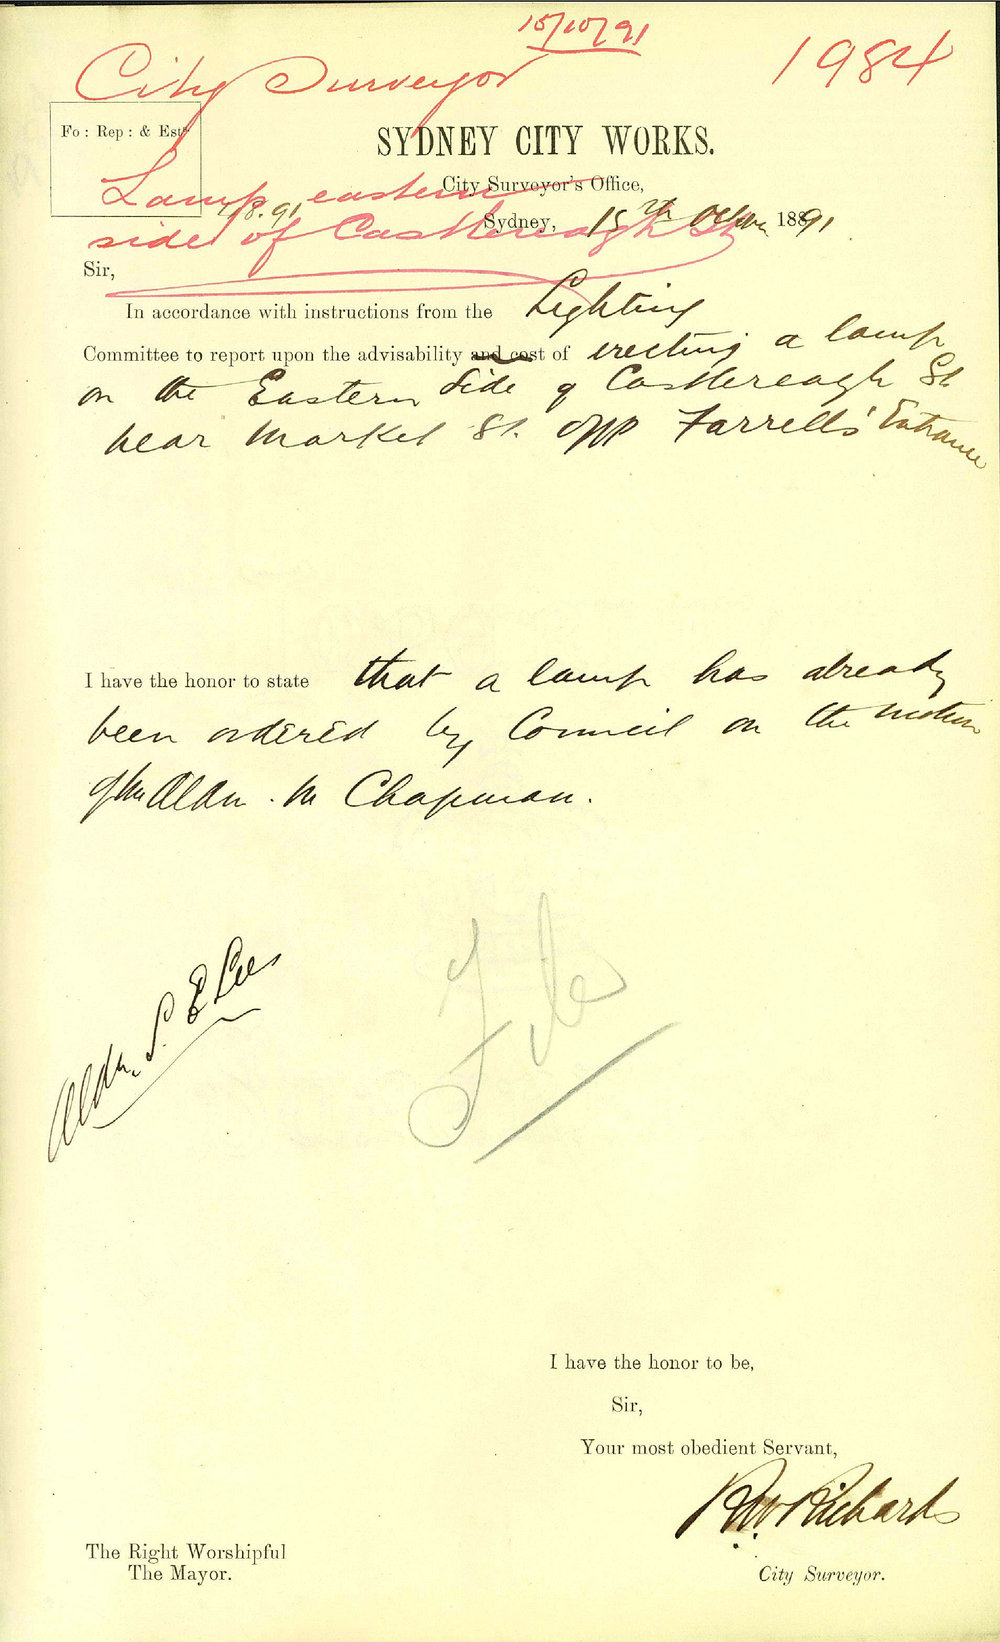 15/10/91
1984
City Surveyor
Fo: Rep: & Est:
SYDNEY CITY WORKS.
City Surveyor's Office,
Lamp eastern
4/8.91
Sydney, 15th 1891
side of Castlereagh St
Sir,
In accordance with instructions from the Lighting
Committee to report upon the advisability and cost of erecting a lamp
on the Eastern Side of Castlereagh St
near Market St. opp Farrells' Entrance
I have the honor to state that a lamp has already
been ordered by Council on the motion
of Mr Aldn. M Chapman.
Aldn. S. E Lees
File
I have the honor to be,
Sir,
Your most obedient Servant,
R W Richards
The Right Worshipful
The Mayor.
City Surveyor.